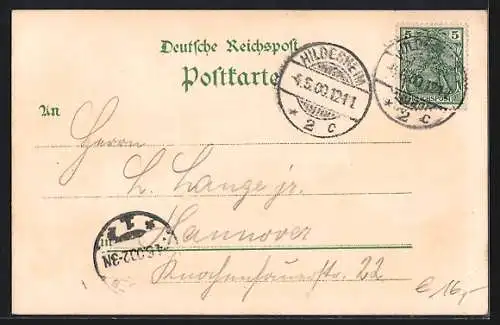 Deutsche Reichspost
Postkarte
5 5
HILDESHEIM
4.5.00.12-1 N
* 2 c
REICHSPOST
* 2 c
An
Herrn
H. Lange jr.
Hannover
Knochenhauerstr. 22
* 1 *
€ 16,-